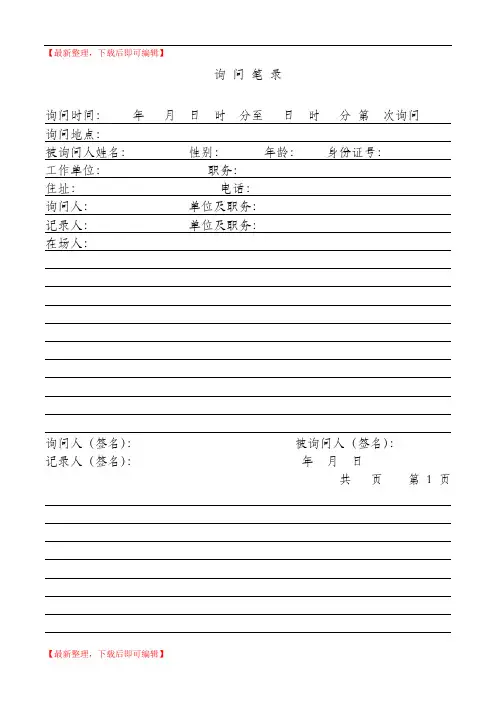 【最新整理，下载后即可编辑】
询 问 笔 录
询问时间： 年 月 日 时 分至 日 时 分 第 次询问
询问地点：
被询问人姓名： 性别： 年龄： 身份证号：
工作单位： 职务：
住址： 电话：
询问人： 单位及职务：
记录人： 单位及职务：
在场人：
询问人（签名）： 被询问人（签名）：
记录人（签名）： 年 月 日
共 页 第 1 页
【最新整理，下载后即可编辑】